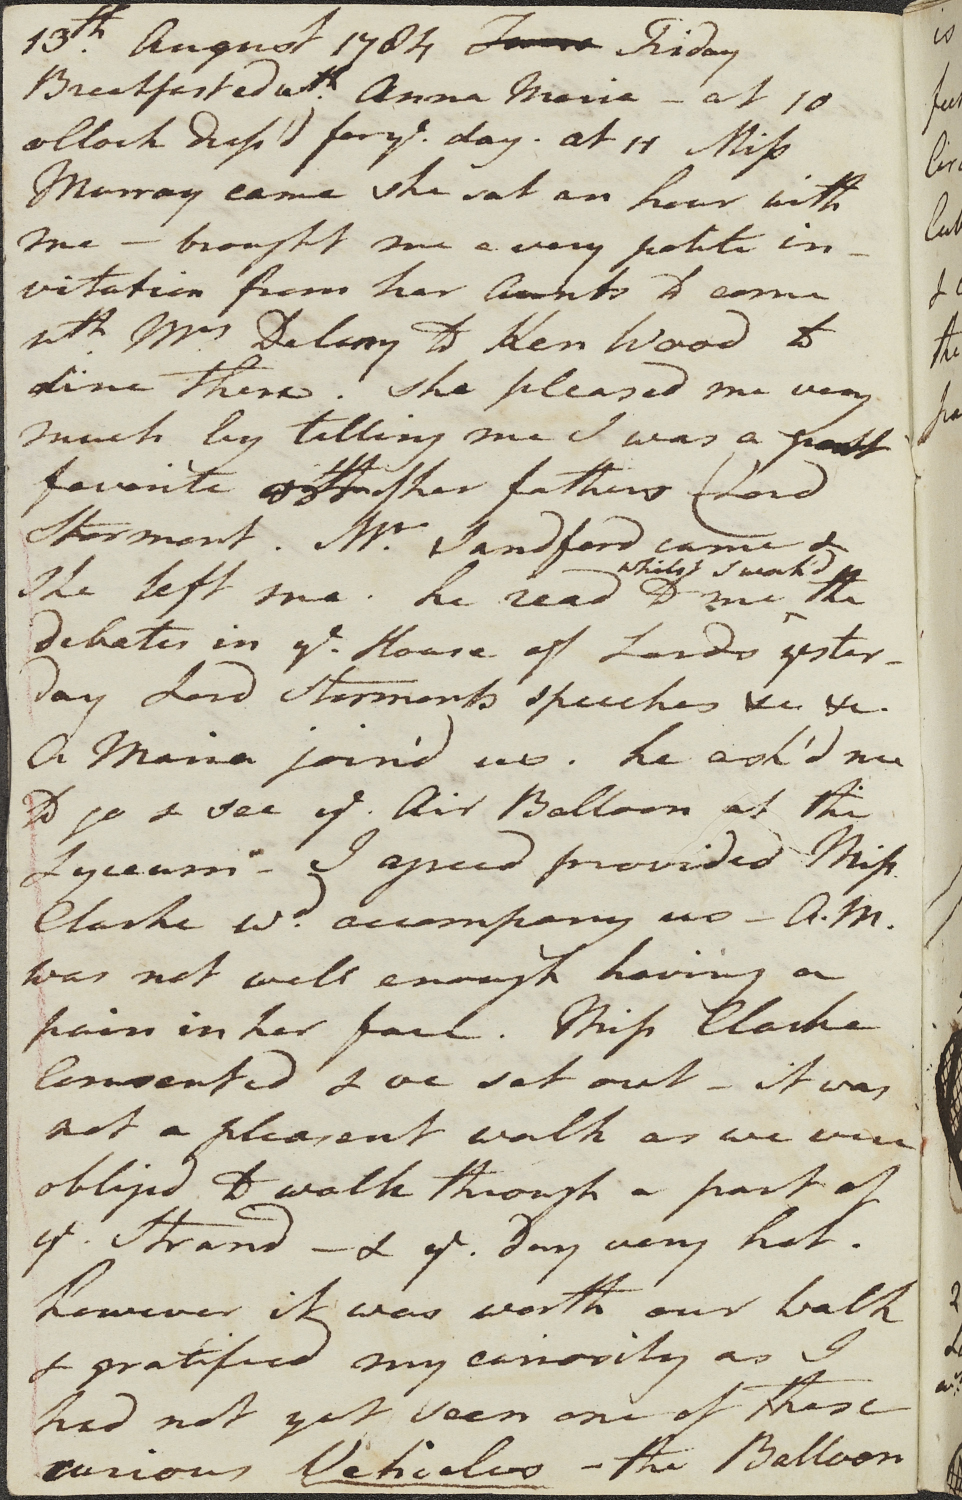 13th. August 1784 Friday
Breakfasted wth. Anna Maria - at 10
oClock dress'd for ye. day. at 11 Miss
Murray came she sat an hour with
me - brought me a very polite in-
vitation from her Aunts to come
wth. Mrs Delany to Ken Wood to
dine there. she pleased me very
much by telling me I was a great
favorite of her fathers (Lord
Stormont. Mr. Sandford came &
she left me. he read to me whilst I work'd the
debates in ye. House of Lords yester-
day Lord Stormonts speeches &c &c.
A Maria join'd us. he ask'd me
to go & see ye. Air Balloon at the
Lyceum - I agreed provided Miss
Clarke wd. accompany us - A.M.
was not well enough having a
pain in her face. Miss Clarke
Consented & we set out - it was
not a pleasent walk as we were
obliged to walk through a part of
ye. Strand - & ye. day very hot.
however it was worth our walk
& gratified my curiosity as I
had not yet seen one of these
curious Vehicles - the Balloon